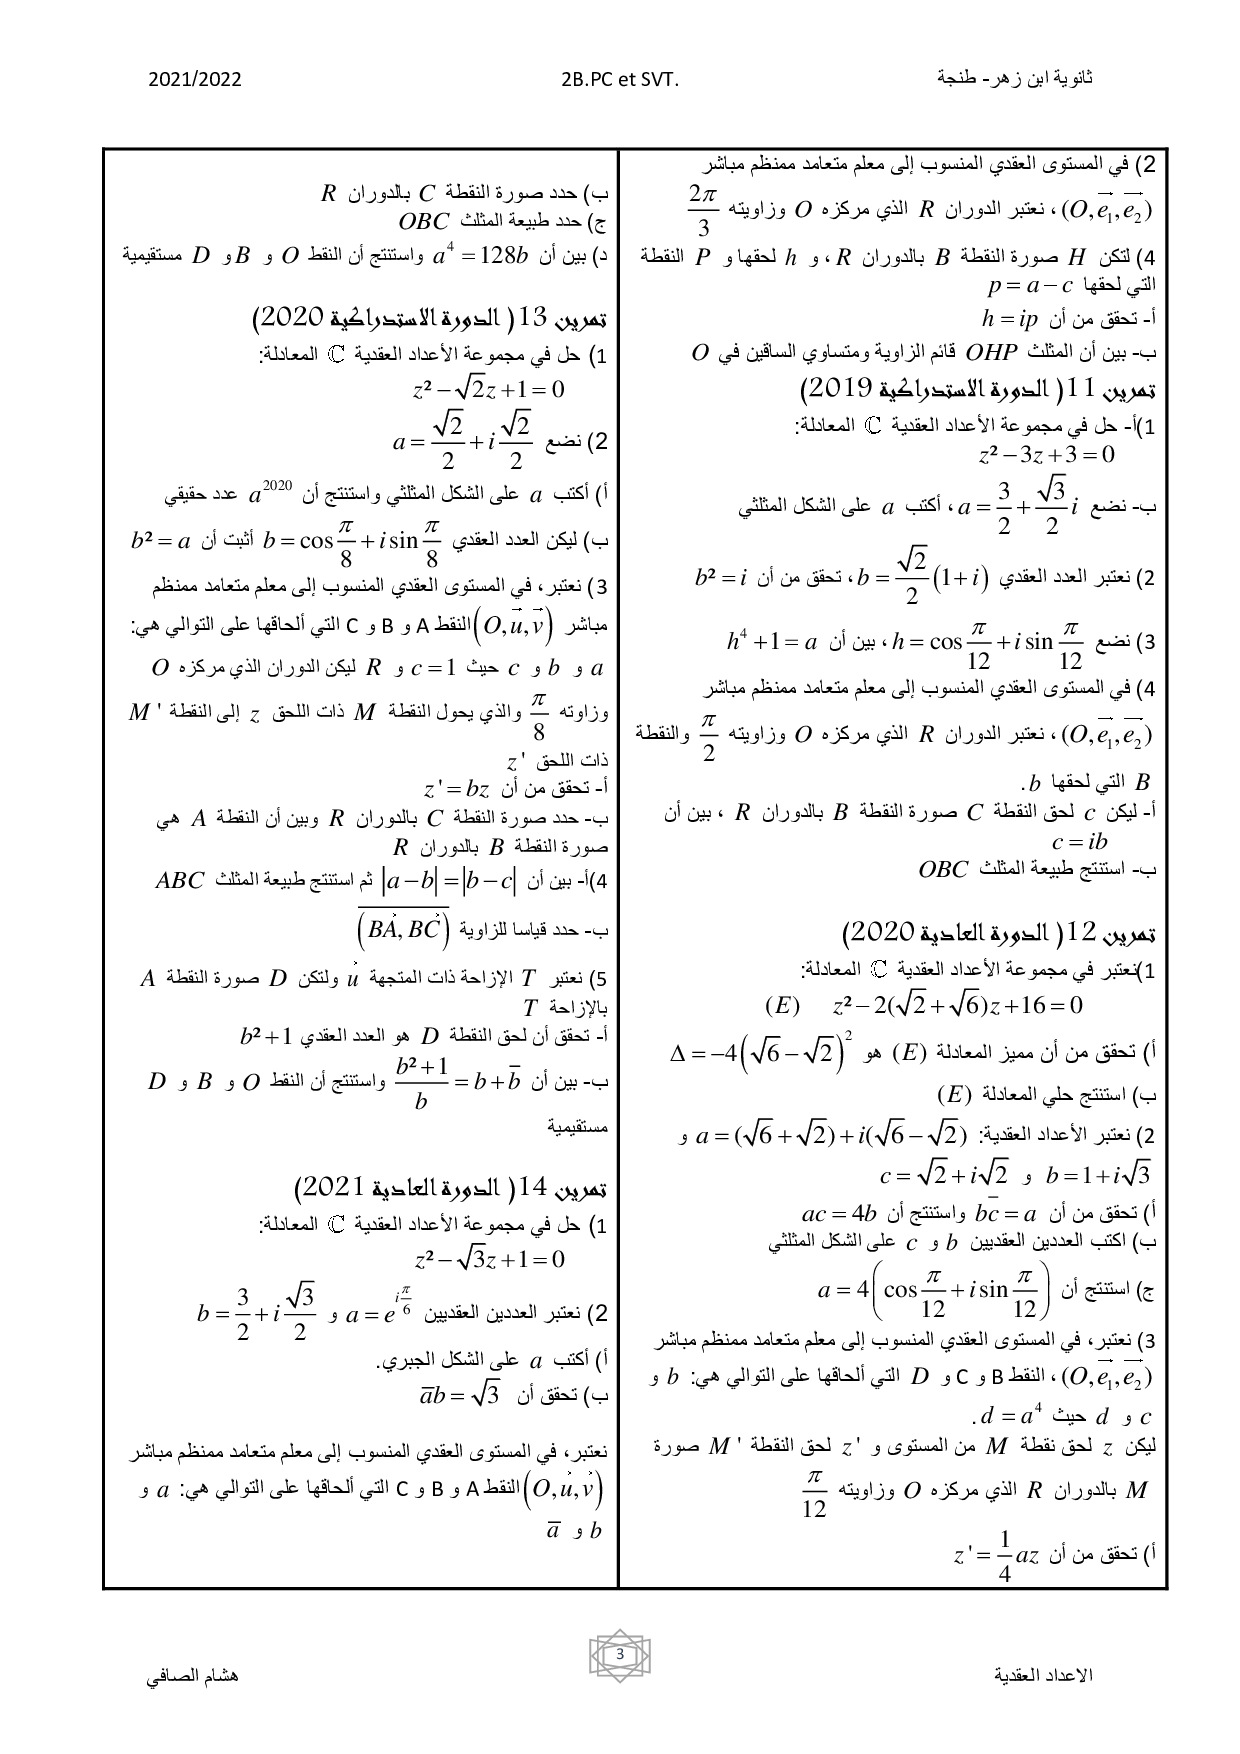 ثانوية ابن زهر- طنجة 2B.PC et SVT. 2021/2022
2) في المستوى العقدي المنسوب إلى معلم متعامد ممنظم مباشر
(O,e₁,e₂) ، نعتبر الدوران R الذي مركزه O وزاويته 2π/3
4) لتكن H صورة النقطة B بالدوران R ، و h لحقها و P النقطة
التي لحقها p = a − c
أ- تحقق من أن h = ip
ب- بين أن المثلث OHP قائم الزاوية ومتساوي الساقين في O
تمرين 11( الدورة الاستدراكية 2019)
1)أ- حل في مجموعة الأعداد العقدية ℂ المعادلة:
z² − 3z + 3 = 0
ب- نضع a = 3/2 + (√3/2)i ، أكتب a على الشكل المثلثي
2) نعتبر العدد العقدي b = (√2/2)(1+i) ، تحقق من أن b² = i
3) نضع h = cos π/12 + i sin π/12 ، بين أن h⁴ + 1 = a
4) في المستوى العقدي المنسوب إلى معلم متعامد ممنظم مباشر
(O,e₁,e₂) ، نعتبر الدوران R الذي مركزه O وزاويته π/2 والنقطة
B التي لحقها b.
أ- ليكن c لحق النقطة C صورة النقطة B بالدوران R ، بين أن
c = ib
ب- استنتج طبيعة المثلث OBC
تمرين 12( الدورة العادية 2020)
1)نعتبر في مجموعة الأعداد العقدية ℂ المعادلة:
(E) z² − 2(√2 + √6)z + 16 = 0
أ) تحقق من أن مميز المعادلة (E) هو Δ = −4(√6 − √2)²
ب) استنتج حلي المعادلة (E)
2) نعتبر الأعداد العقدية: a = (√6 + √2) + i(√6 − √2) و
b = 1 + i√3 و c = √2 + i√2
أ) تحقق من أن bc̄ = a واستنتج أن ac = 4b
ب) اكتب العددين العقديين b و c على الشكل المثلثي
ج) استنتج أن a = 4(cos π/12 + i sin π/12)
3) نعتبر، في المستوى العقدي المنسوب إلى معلم متعامد ممنظم مباشر
(O,e₁,e₂) ، النقط B و C و D التي ألحاقها على التوالي هي: b و
c و d حيث d = a⁴ .
ليكن z لحق نقطة M من المستوى و z' لحق النقطة M' صورة
M بالدوران R الذي مركزه O وزاويته π/12
أ) تحقق من أن z' = 1/4 az
ب) حدد صورة النقطة C بالدوران R
ج) حدد طبيعة المثلث OBC
د) بين أن a⁴ = 128b واستنتج أن النقط O و B و D مستقيمية
تمرين 13( الدورة الاستدراكية 2020)
1) حل في مجموعة الأعداد العقدية ℂ المعادلة:
z² − √2z + 1 = 0
2) نضع a = √2/2 + i√2/2
أ) أكتب a على الشكل المثلثي واستنتج أن a²⁰²⁰ عدد حقيقي
ب) ليكن العدد العقدي b = cos π/8 + i sin π/8 أثبت أن b² = a
3) نعتبر، في المستوى العقدي المنسوب إلى معلم متعامد ممنظم
مباشر (O,u,v) النقط A و B و C التي ألحاقها على التوالي هي:
a و b و c حيث c = 1 و R ليكن الدوران الذي مركزه O
وزاوته π/8 والذي يحول النقطة M ذات اللحق z إلى النقطة M'
ذات اللحق z'
أ- تحقق من أن z' = bz
ب- حدد صورة النقطة C بالدوران R وبين أن النقطة A هي
صورة النقطة B بالدوران R
4)أ- بين أن |a − b| = |b − c| ثم استنتج طبيعة المثلث ABC
ب- حدد قياسا للزاوية (BA, BC)
5) نعتبر T الإزاحة ذات المتجهة u ولتكن D صورة النقطة A
بالإزاحة T
أ- تحقق أن لحق النقطة D هو العدد العقدي b² + 1
ب- بين أن (b² + 1)/b = b + b̄ واستنتج أن النقط O و B و D
مستقيمية
تمرين 14( الدورة العادية 2021)
1) حل في مجموعة الأعداد العقدية ℂ المعادلة:
z² − √3z + 1 = 0
2) نعتبر العددين العقديين a = e^(iπ/6) و b = 3/2 + i√3/2
أ) أكتب a على الشكل الجبري.
ب) تحقق أن āb = √3
نعتبر، في المستوى العقدي المنسوب إلى معلم متعامد ممنظم مباشر
(O,u,v) النقط A و B و C التي ألحاقها على التوالي هي: a و
b و ā
3
الاعداد العقدية هشام الصافي